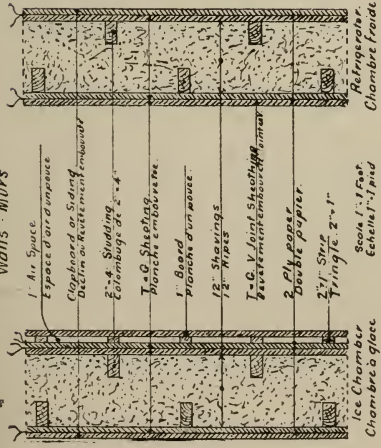 Walls Murs
1" Air Space
Espace d'air d'un pouce
Clapboard or Siding
Déclin ou Revêtement embouveté
2"-4" Studding
Colombage de 2"-4"
T-G. Sheeting
Planche embouvetée.
1" Board
Planche d'un pouce.
12" Shavings
12" Ripes
T-G. V Joint Sheathing
Revêtement embouveté
2 Ply paper
Double papier.
2"-1" Strip
Tringle. 2"-1"
Ice Chamber
Chambre à glace
Scale 1"=1 Foot.
Echelle 1"=1 pied
Refrigerator.
Chambre froide